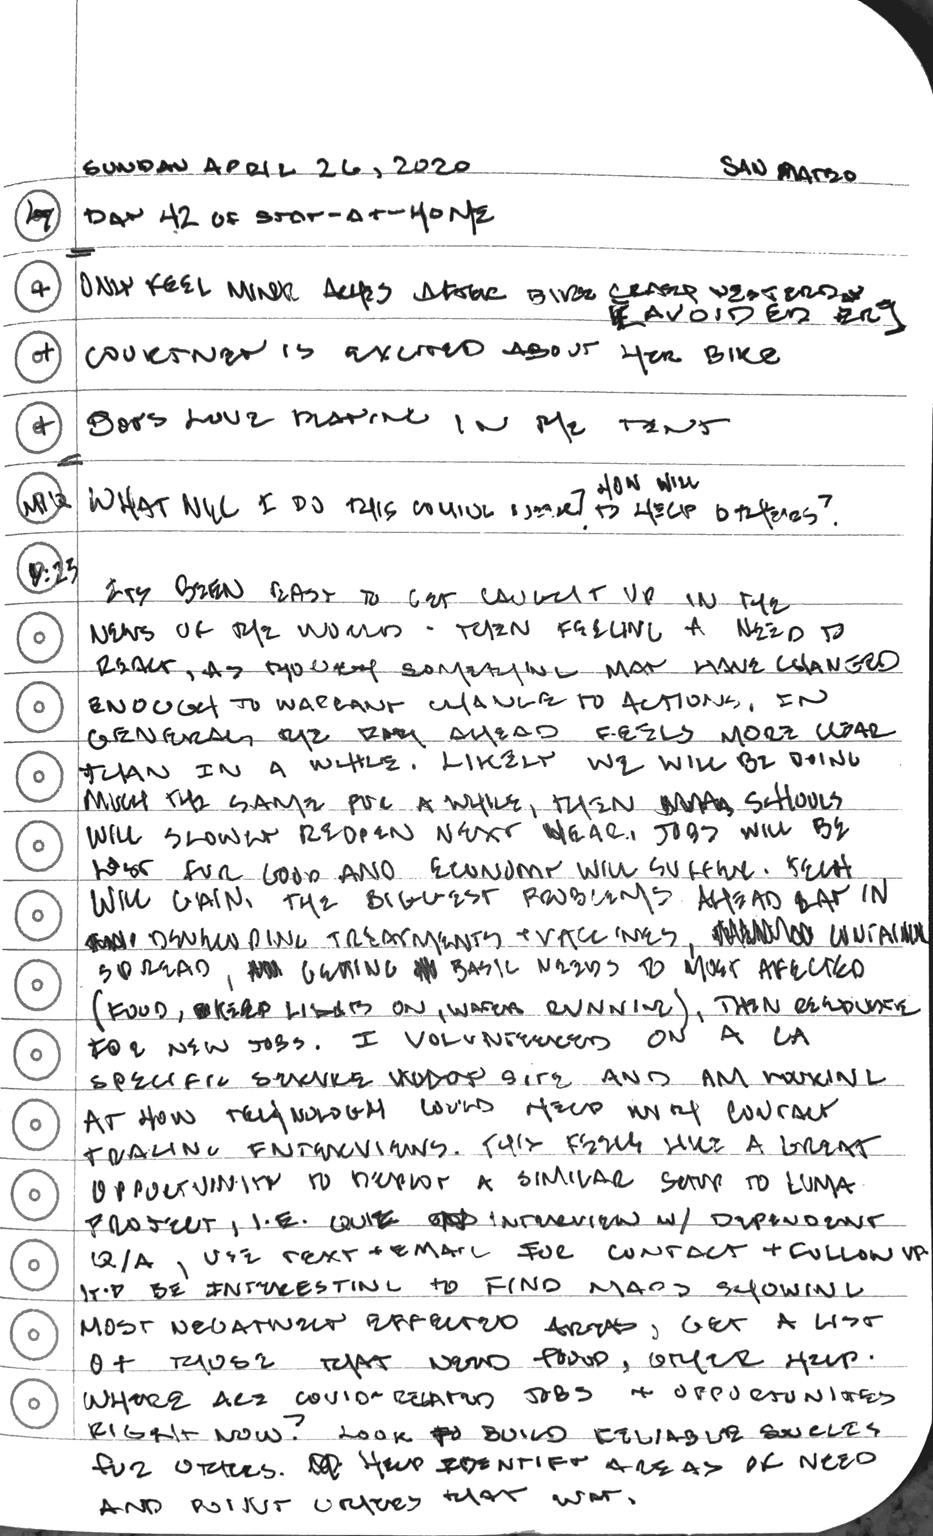 SUNDAY APRIL 26, 2020 SAN MATEO
DAY 42 OF STAY-AT-HOME
+ ONLY FEEL MINOR ACHES AFTER BIKE CRASH YESTERDAY
[AVOIDED ER]
+ COURTNEY IS EXCITED ABOUT HER BIKE
+ BOYS LOVE PLAYING IN THE TENT
WHAT WILL I DO THIS COMING WEEK? HOW WILL
TO HELP OTHERS?
ITS BEEN EASY TO GET CAUGHT UP IN THE
NEWS OF THE WORLD - THEN FEELING A NEED TO
REACT, AS THOUGH SOMETHING MAY HAVE CHANGED
ENOUGH TO WARRANT CHANGE TO ACTIONS. IN
GENERAL, THE PATH AHEAD FEELS MORE CLEAR
THAN IN A WHILE. LIKELY WE WILL BE DOING
MUCH THE SAME FOR A WHILE, THEN SCHOOLS
WILL SLOWLY REOPEN NEXT YEAR. JOBS WILL BE
LOST FOR GOOD AND ECONOMY WILL SUFFER. TECH
WILL GAIN. THE BIGGEST PROBLEMS AHEAD LAY IN
DEVELOPING TREATMENTS + VACCINES, CONTAINING
SPREAD, GETTING BASIC NEEDS TO MOST AFFECTED
(FOOD, KEEP LIGHTS ON, WATER RUNNING), THEN RESOURCE
FOR NEW JOBS. I VOLUNTEERED ON A CA
SPECIFIC SERVICE SITE AND AM LOOKING
AT HOW TECHNOLOGY COULD HELP WITH CONTACT
TRACING INTERVIEWS. THIS FEELS LIKE A GREAT
OPPORTUNITY TO DEPLOY A SIMILAR SETUP TO LUMA
PROJECT, I.E. QUIZ INTERVIEW W/ DEPENDENT
Q/A, USE TEXT + EMAIL FOR CONTACT + FOLLOW UP
IT'D BE INTERESTING TO FIND MAPS SHOWING
MOST NEGATIVELY EFFECTED AREAS, GET A LIST
OF THOSE THAT NEED FOOD, OTHER HELP.
WHERE ARE COVID-RELATED JOBS + OPPORTUNITES
RIGHT NOW? LOOK TO BUILD RELIABLE SOURCES
FOR OTHERS. HELP IDENTIFY AREAS OF NEED
AND POINT OTHERS THAT WAY.